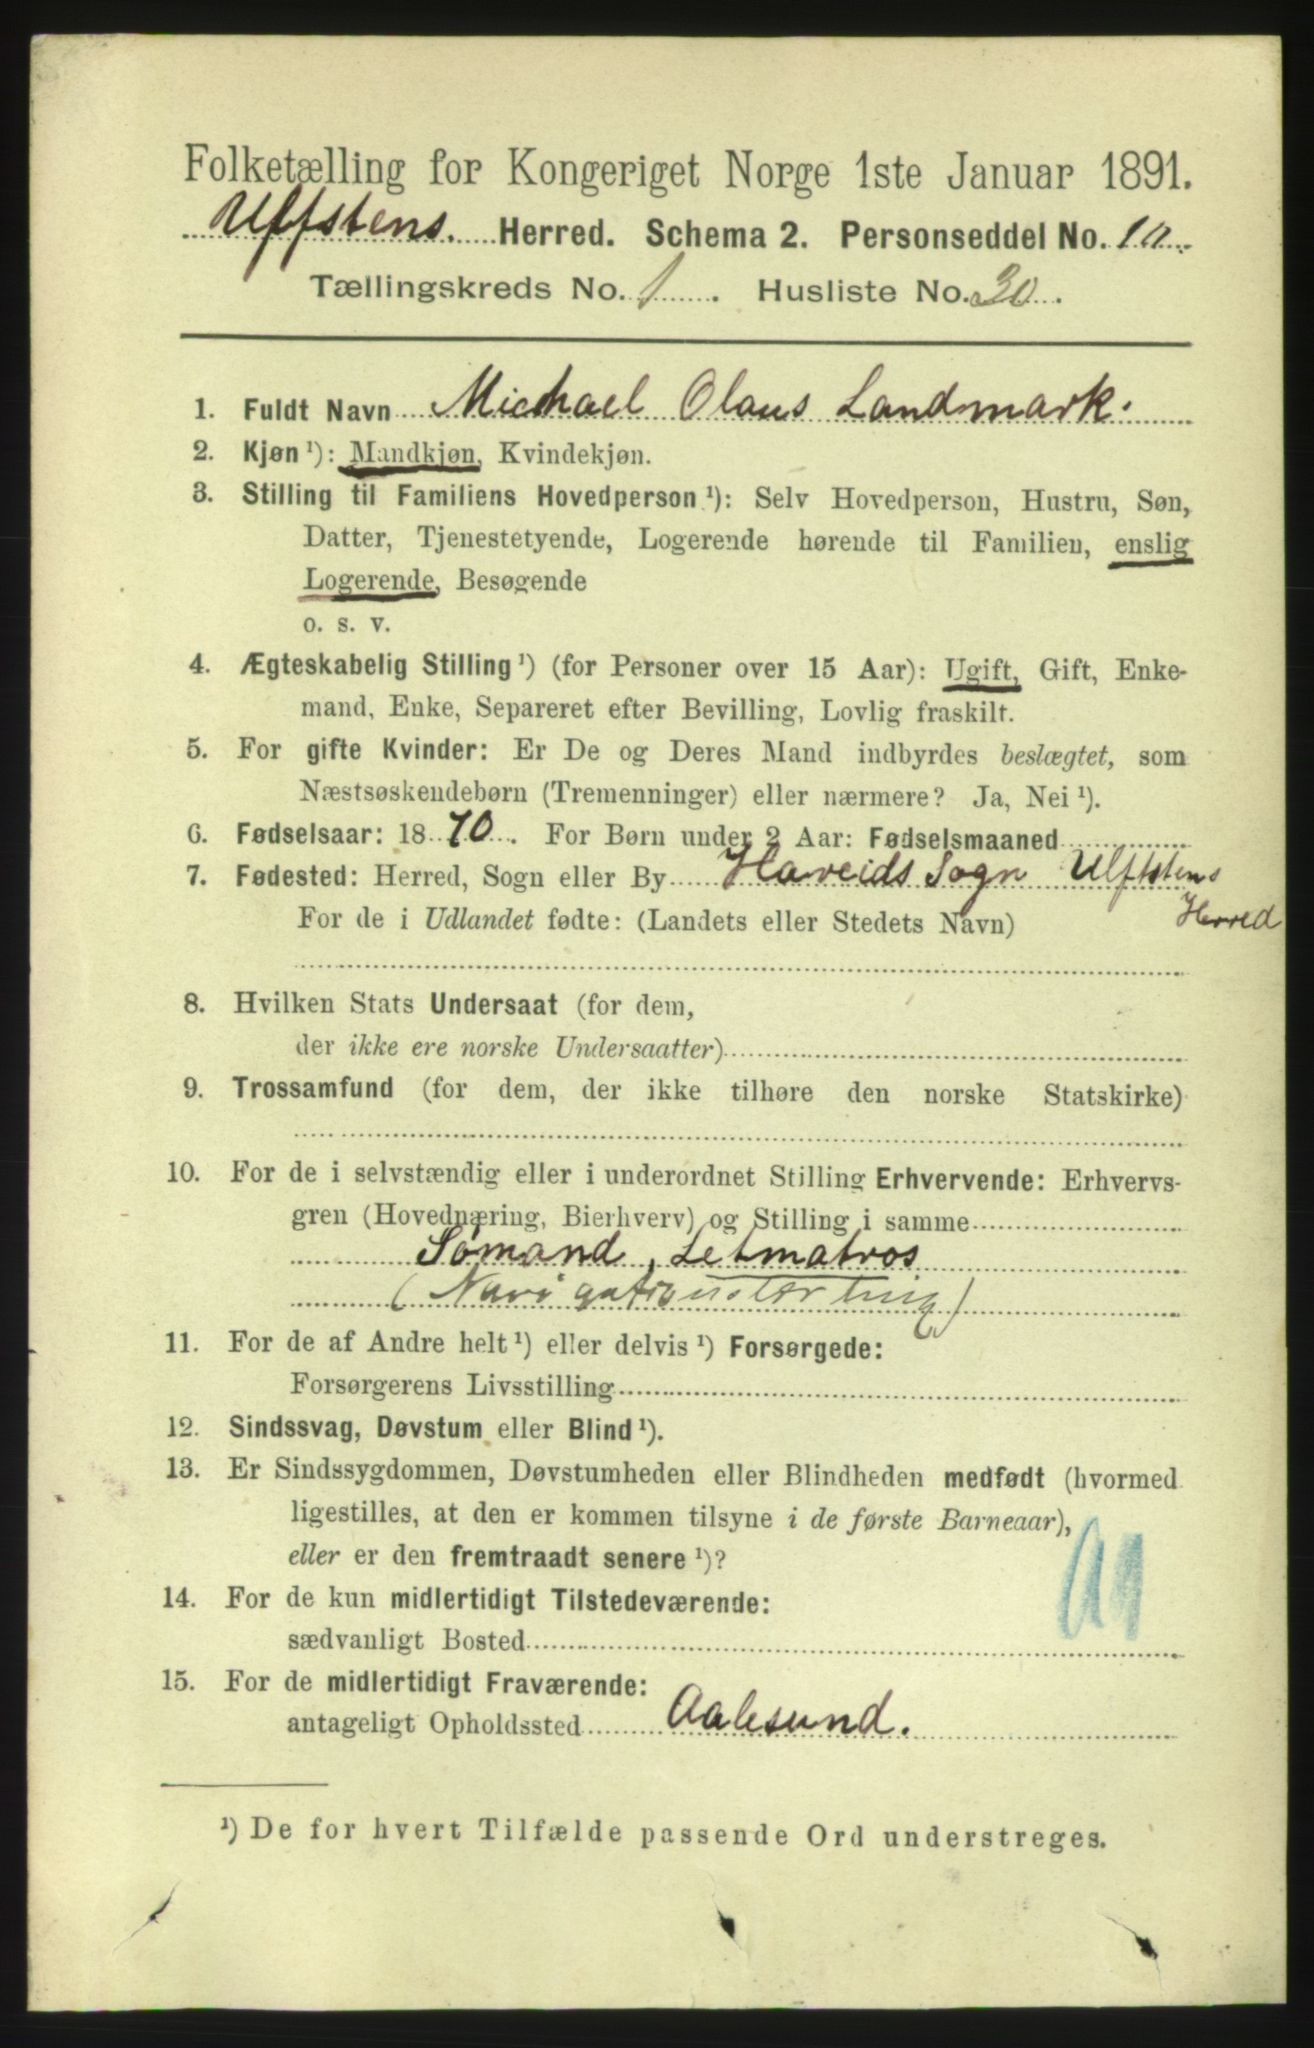 Folketælling for Kongeriget Norge 1ste Januar 1891.
Ulfstens. Herred. Schema 2. Personseddel No. 10.
Tællingskreds No. 1. Husliste No. 30.
1. Fuldt Navn Michael Olaus Landmark.
2. Kjøn ¹): Mandkjøn, Kvindekjøn.
3. Stilling til Familiens Hovedperson ¹): Selv Hovedperson, Hustru, Søn,
Datter, Tjenestetyende, Logerende hørende til Familien, enslig
Logerende, Besøgende
o. s. v.
4. Ægteskabelig Stilling ¹) (for Personer over 15 Aar): Ugift, Gift, Enke-
mand, Enke, Separeret efter Bevilling, Lovlig fraskilt.
5. For gifte Kvinder: Er De og Deres Mand indbyrdes beslægtet, som
Næstsøskendebørn (Tremenninger) eller nærmere? Ja, Nei ¹).
6. Fødselsaar: 1870. For Børn under 2 Aar: Fødselsmaaned
7. Fødested: Herred, Sogn eller By Hareids Sogn Ulfstens
Herred
For de i Udlandet fødte: (Landets eller Stedets Navn)
8. Hvilken Stats Undersaat (for dem,
der ikke ere norske Undersaatter)
9. Trossamfund (for dem, der ikke tilhøre den norske Statskirke)
10. For de i selvstændig eller i underordnet Stilling Erhvervende: Erhvervs-
gren (Hovednæring, Bierhverv) og Stilling i samme
Sømand, Letmatros
11. For de af Andre helt ¹) eller delvis ¹) Forsørgede:
Forsørgerens Livsstilling
12. Sindssvag, Døvstum eller Blind ¹).
13. Er Sindssygdommen, Døvstumheden eller Blindheden medfødt (hvormed
ligestilles, at den er kommen tilsyne i de første Barneaar),
eller er den fremtraadt senere ¹)?
14. For de kun midlertidigt Tilstedeværende:
sædvanligt Bosted
15. For de midlertidigt Fraværende:
antageligt Opholdssted Aalesund.
¹) De for hvert Tilfælde passende Ord understreges.